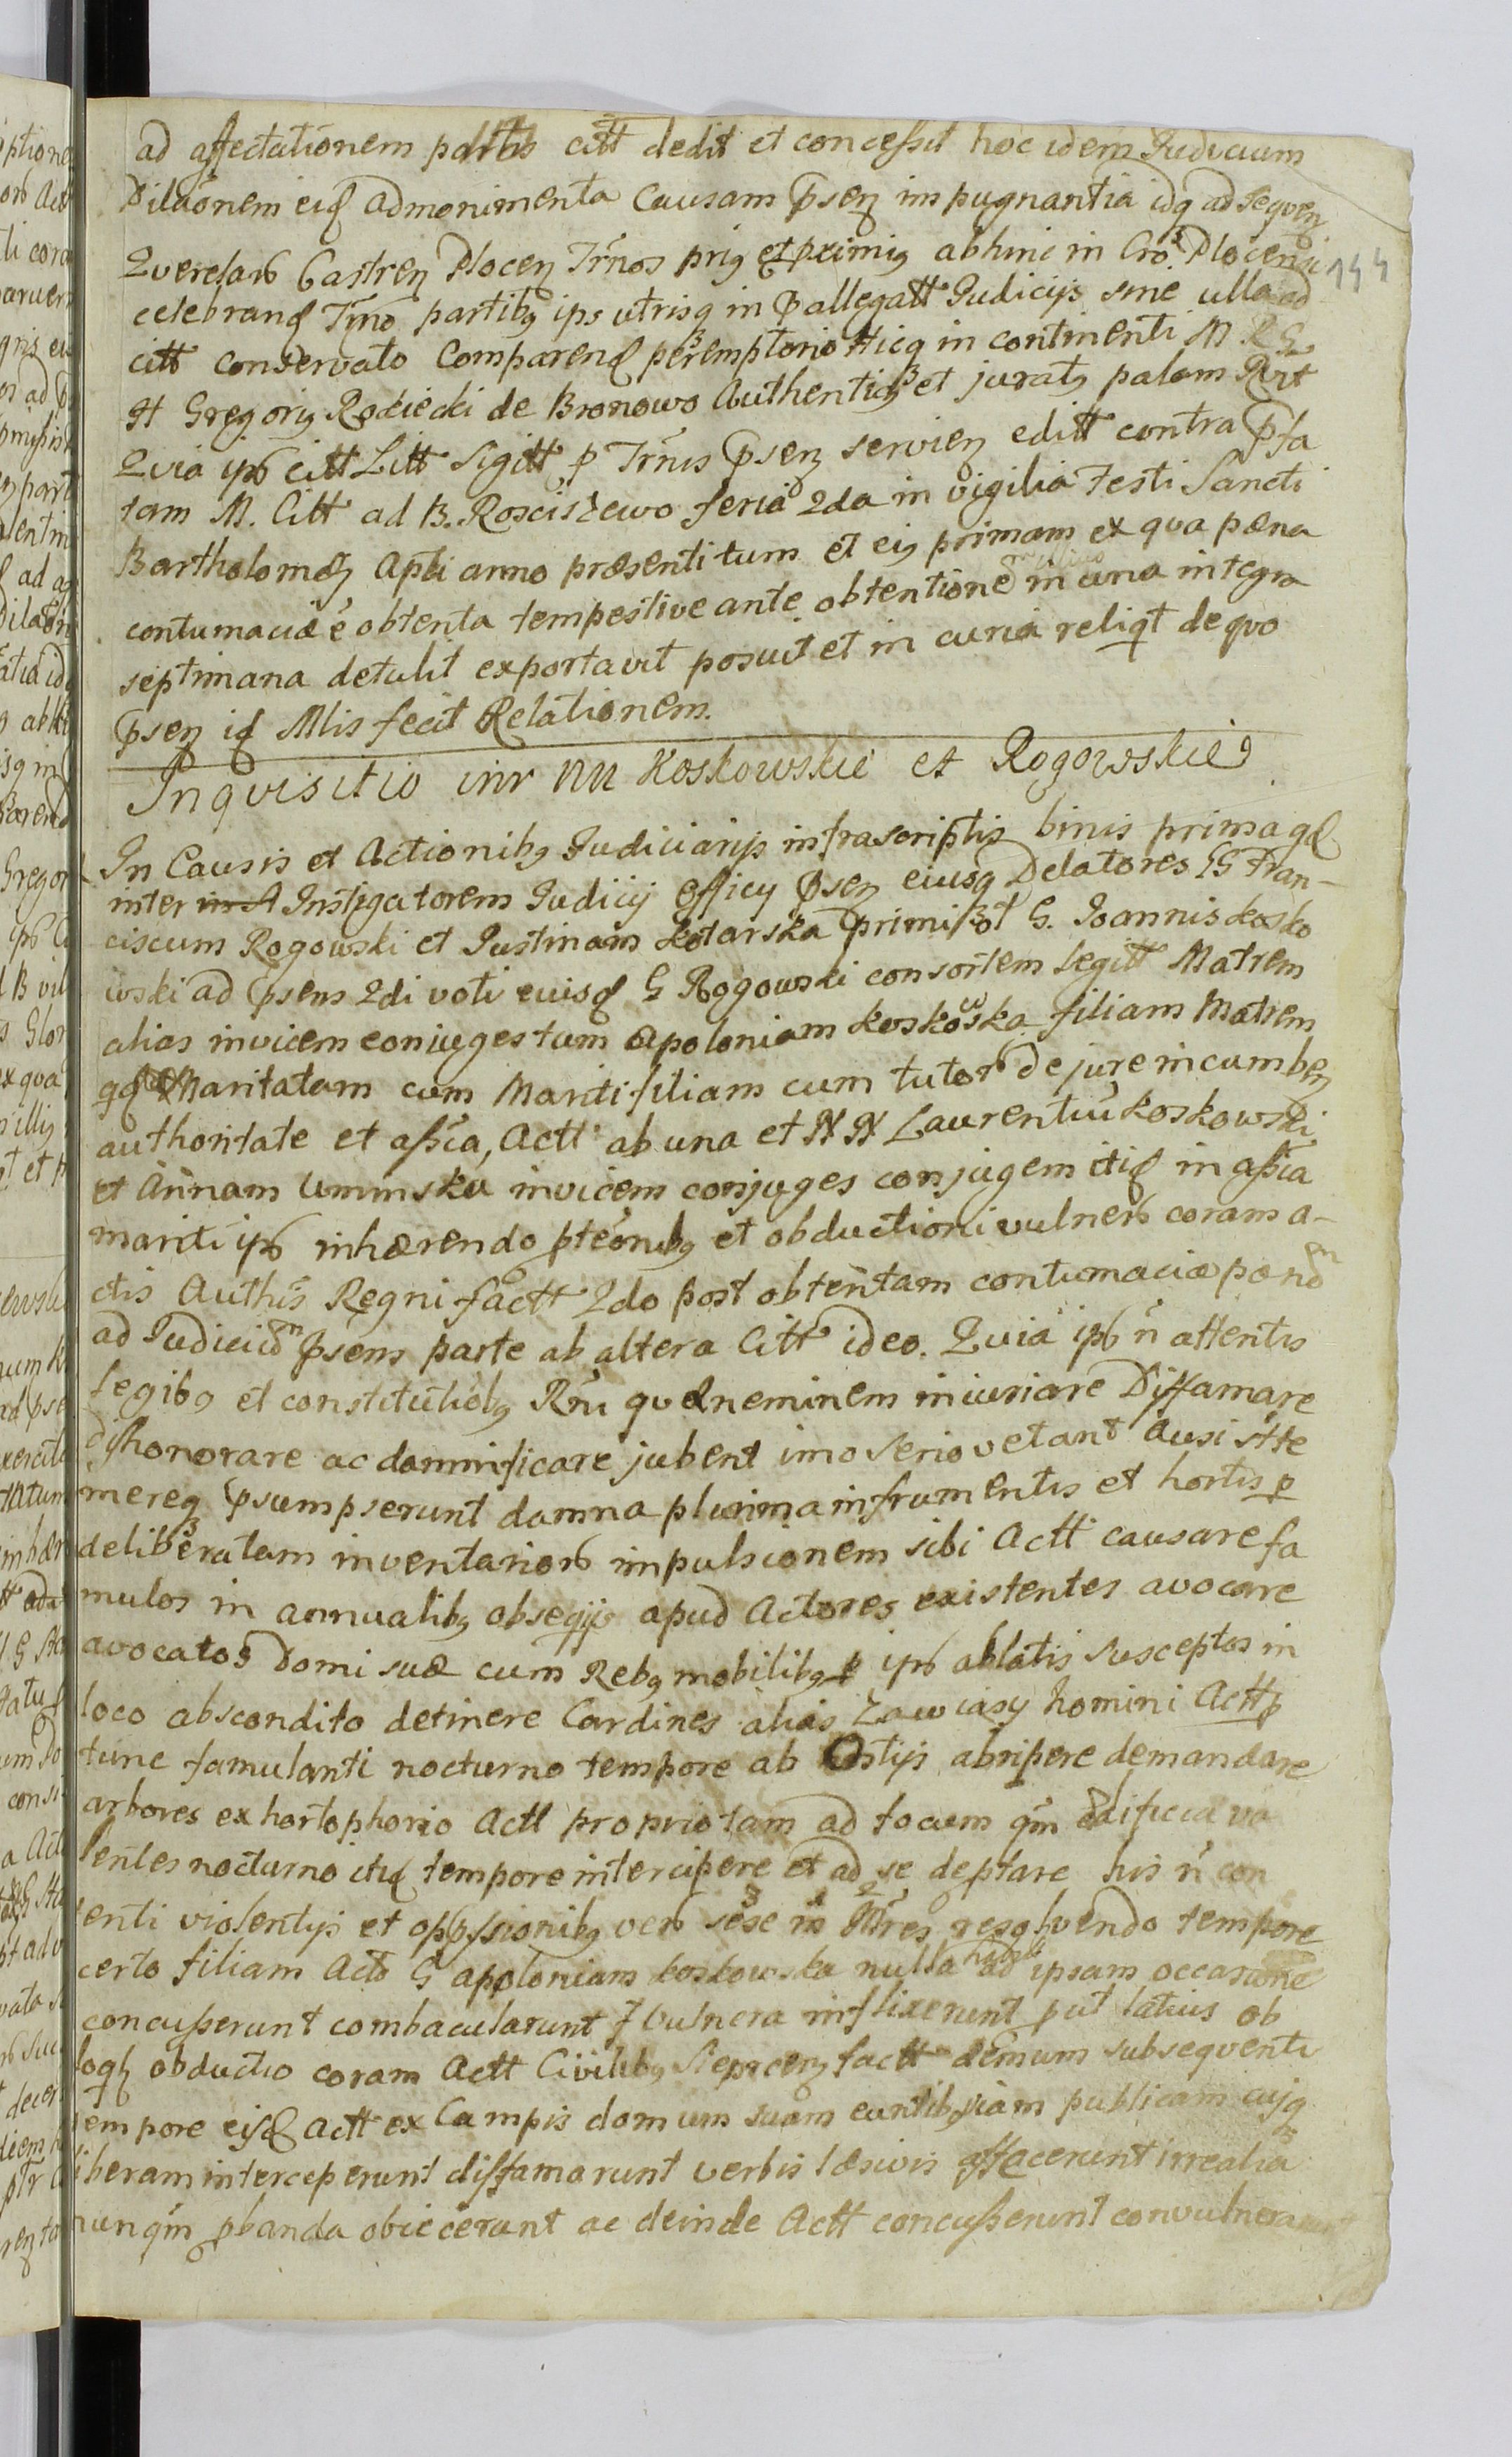 ad affectationem partis citt dedit et concessit hoc idem Judicium
Dilaonem eid ad monimenta Causam psen impugnantia idq ad seqven
Qverelar Castren Plocen Trnos prig et primig abhinc in Cro Plocensi
144
celebrand Tmo partibg ips utrisq in pallegatt Judicijs sine ulla ad
citt conservato Comparend peremptorio Hicq in continenti M R G
H Gregorig Rościecki de Bronowo Authenticg et juratg palam Rvit
Qvia ipo citt Litt Sigitt p Trnis psen servien editt contra pfa
tam M. Citt ad B. Rosciszewo feria 2da in vigilia Festi Sancti
Bartholomei Apli anno præsenti tum et eig primam ex qva pæna
contumaciæ e obtenta tempestive ante obtentione millius in una integra
septimana detulit exportavit posuit et in curia reliqt de qvo
psen id Mlis fecit Relationem.
Inqvisitio intr NN Koskowskie et Rogowskie
In Causis et Actionibg Judiciarijs infrascriptis binis prima qd
inter Instigatorem Judicij officij psen eiusq Delatores GG Fran-
ciscum Rogowski et Justinam Kotarska primi vot G. Joannis Kosko
wski ad psens 2di voti euisq G Rogowski consortem legitt Matrem
alias invicem conjuges tum Apoloniam Koskowska filiam Matrem
qd Maritatam cum Mariti filiam cum tutor De jure incumben
authoritate et assia, Actt ab una et NN Laurentiu Koskowski
et Annam Uminska invicem conjuges conjugem itid in assia
mariti ipo inhærendo pteonibg et obductioni vulner coram a-
ctis Authis Regni factt 2do post obtentam contumaciæ pænam
ad Judicium psens parte ab altera Citt ideo. Qvia ipo n attentis
legibg et constitutiobg Rni qvæ neminem iniuriare Diffamare
dishonorare ac damnificare jubent imo serio vetant Ausi st te
mereq psumpserunt damna plurima in frumentis et hortis p
deliberatam inventarior impulsionem sibi Actt causare fa
mulos in annualibg obseqijs apud Actores existentes avocare
avocatos Domi suæ cum Rebg mobilibg p ipo ablatis susceptos in
loco abscondito detinere Cardines alias Zawiasy homini Actt p
tunc famulanti nocturno tempore ab Ostijs abripere demandare
arbores ex hortophorio Actt proprio tam ad focum qm ædificia va
lentes nocturno itid tempore intercipere et ad se deptare his n con
tenti violentijs et oppssionibg vero sese in res resolvendo tempore
certo filiam Acto G Apoloniam Koskowska nulla habita ad ipsam occasione
concusserunt combacularunt vulnera inflixerunt put latius ob
loqt obductio coram Actt Civilibg Sieprcen factt demum subseqventi
tempore eisd Actt ex Campis domum suam euntibg viam publicam cuiq
liberam interceperunt diffamarunt verbis læsivis affecerunt irrealia
nunqm pbanda obiecerunt ac deinde Actt concusserunt convulnerarunt